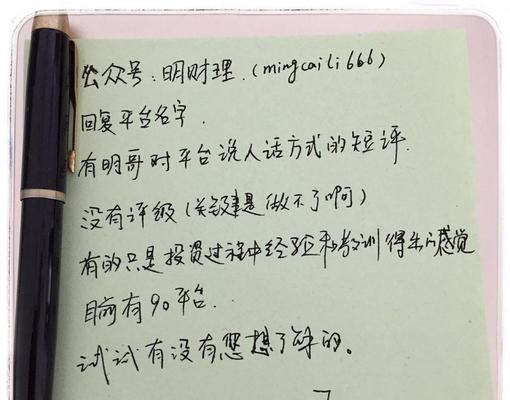 公众号:明财理.(mingcaili666)
回复平台名字.
有明哥对平台说人话方式的短评.
没有评级(关键是做不了啊)
有的只是投资过程中经验和教训得出的感觉
目前有90平台..
试试有没有您想了解的。